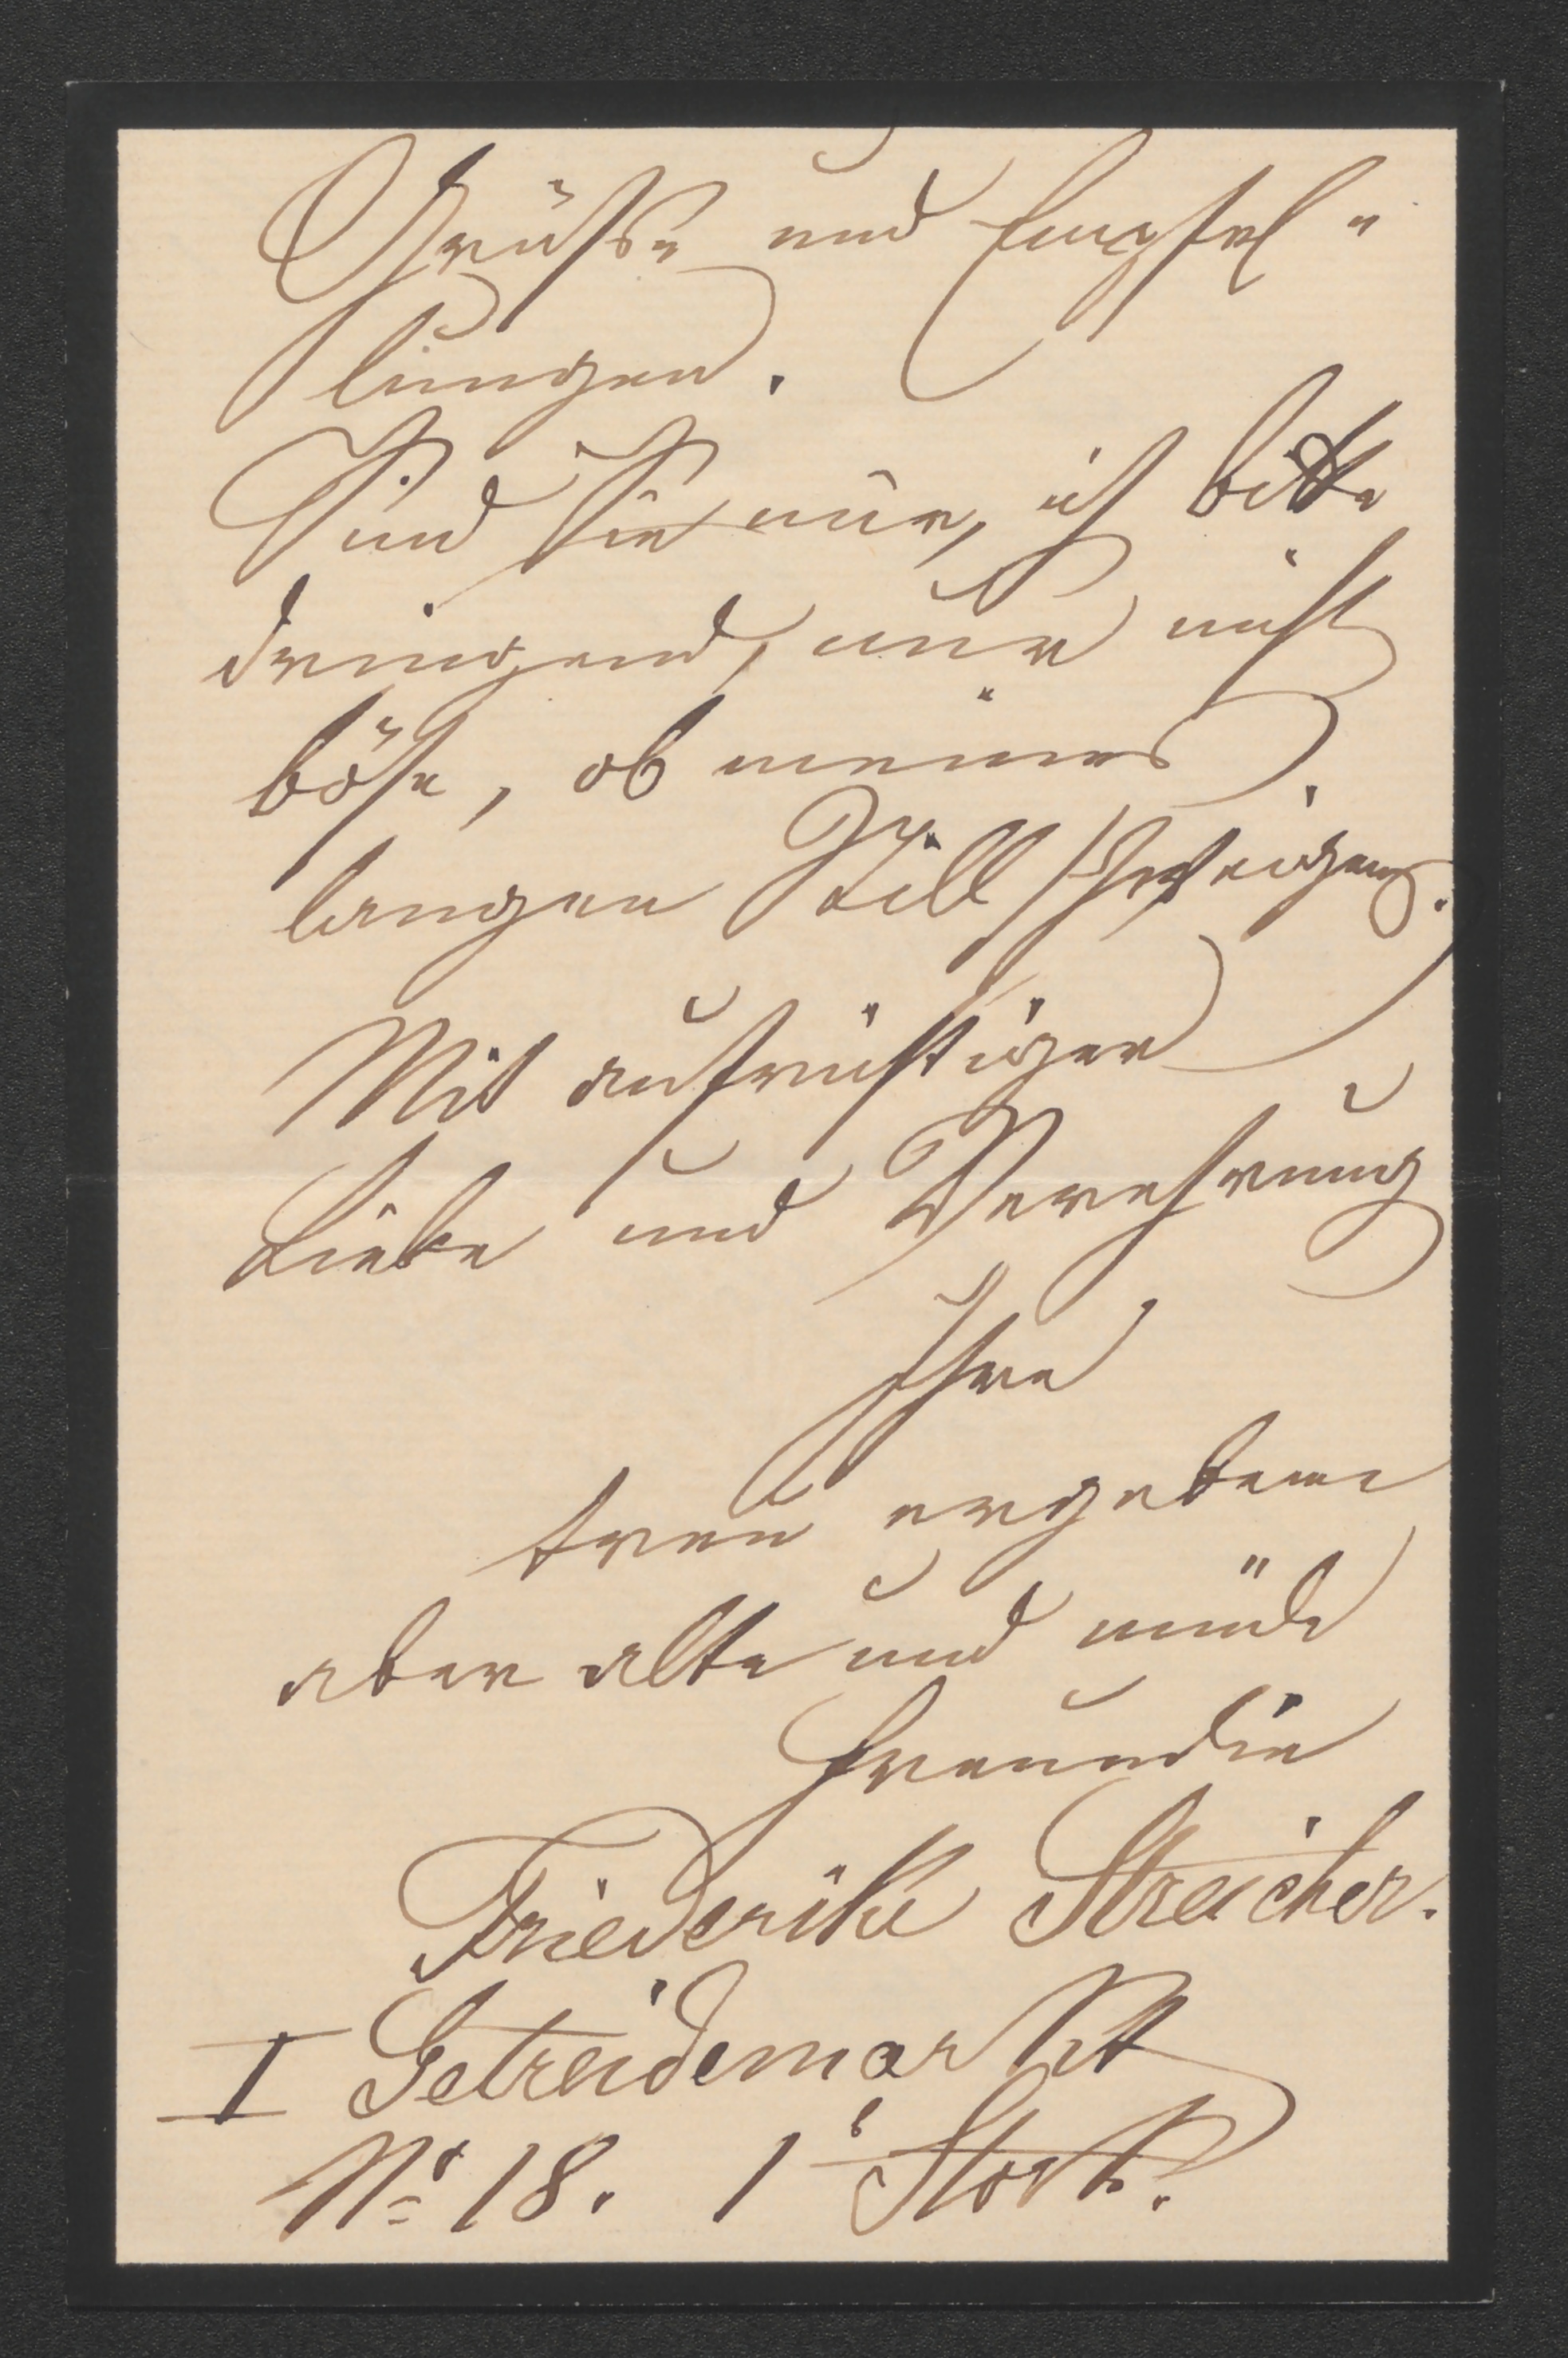 Grüße und Empfeh-
lungen.
Sind Sie mir, ich bitte
dringend, nur nicht
böse, ob meines
langen Stillschweigens.
Mit aufrichtiger
Liebe und Verehrung
Ihre
treu ergebene
aber alte und müde
Freundin
Friederike Streicher.
I Getreidemarkt
No 18. 1t Stock.